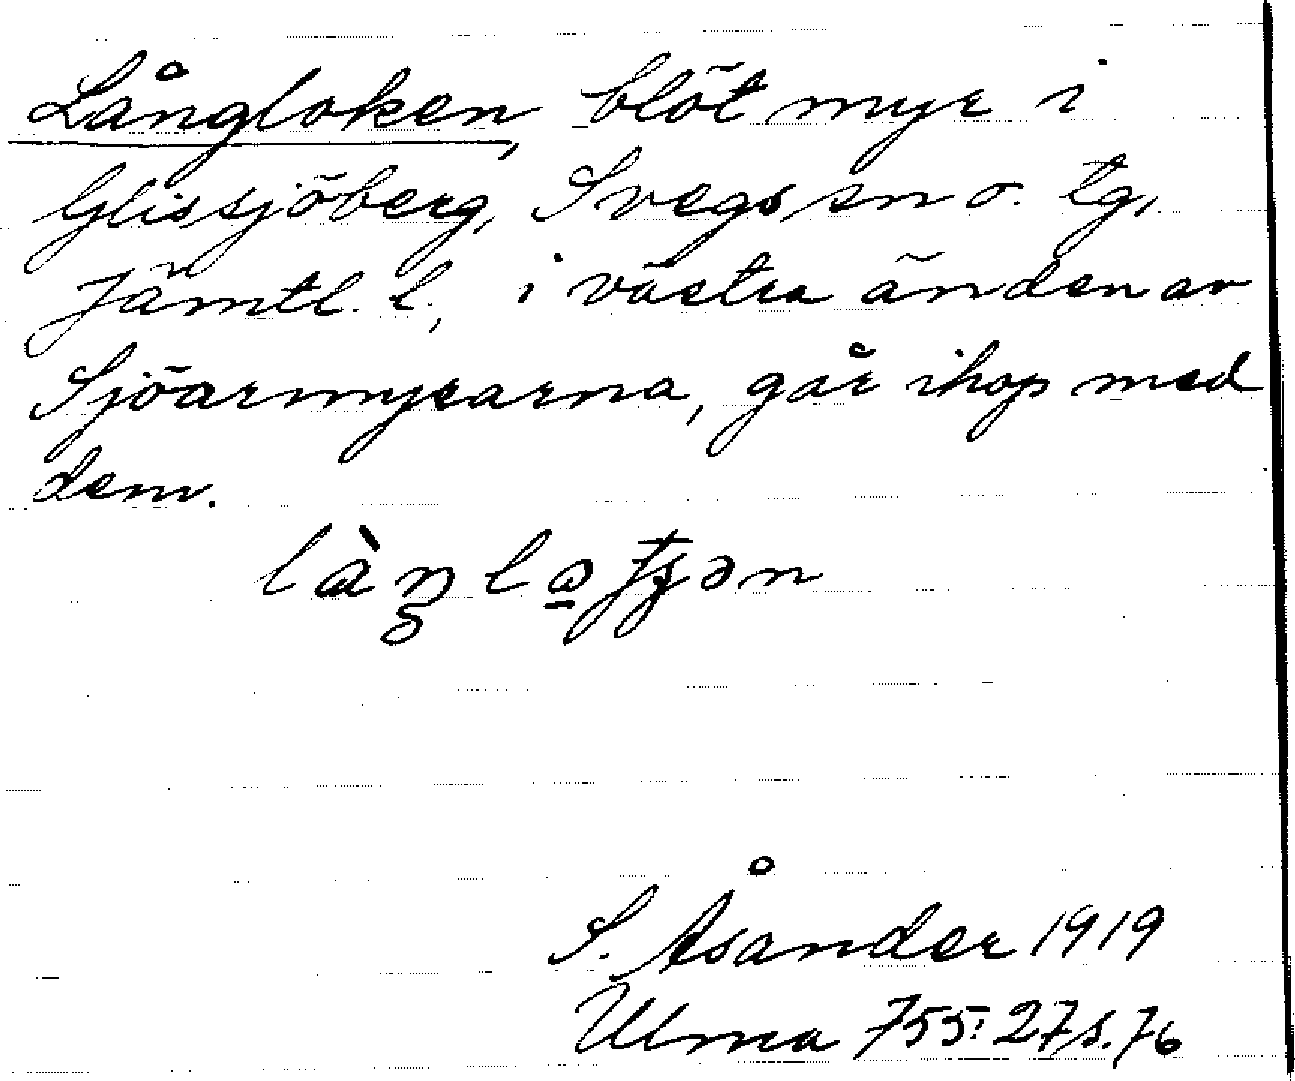 Långloken, blöt myr i
Glissjöberg, Svegs sn o. tg,
Jämtl. l., i västra änden av
Sjöarmyrarna, går ihop med
dem.
S. Åsander 1919
Ulma 755:27 s. 76